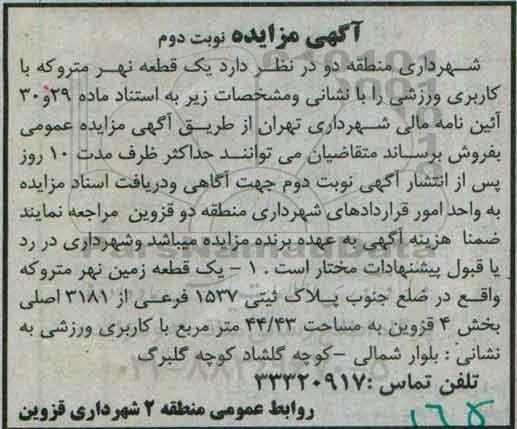 آگهی مزایده نوبت دوم
شهرداری منطقه دو در نظر دارد یک قطعه نهر متروکه با
کاربری ورزشی را با نشانی ومشخصات زیر به استناد ماده ۲۹و۳۰
آئین نامه مالی شهرداری تهران از طریق آگهی مزایده عمومی
بفروش برساند متقاضیان می توانند حداکثر ظرف مدت ۱۰ روز
پس از انتشار آگهی نوبت دوم جهت آگاهی ودریافت اسناد مزایده
به واحد امور قراردادهای شهرداری منطقه دو قزوین مراجعه نمایند
ضمنا هزینه آگهی به عهده برنده مزایده میباشد وشهرداری در رد
یا قبول پیشنهادات مختار است . ۱ - یک قطعه زمین نهر متروکه
واقع در ضلع جنوب پلاک ثبتی ۱۵۳۷ فرعی از ۳۱۸۱ اصلی
بخش ۴ قزوین به مساحت ۴۴/۴۳ متر مربع با کاربری ورزشی به
نشانی : بلوار شمالی -کوچه گلشاد کوچه گلبرگ
تلفن تماس :۳۳۳۲۰۹۱۷
روابط عمومی منطقه ۲ شهرداری قزوین
ParsNamadData